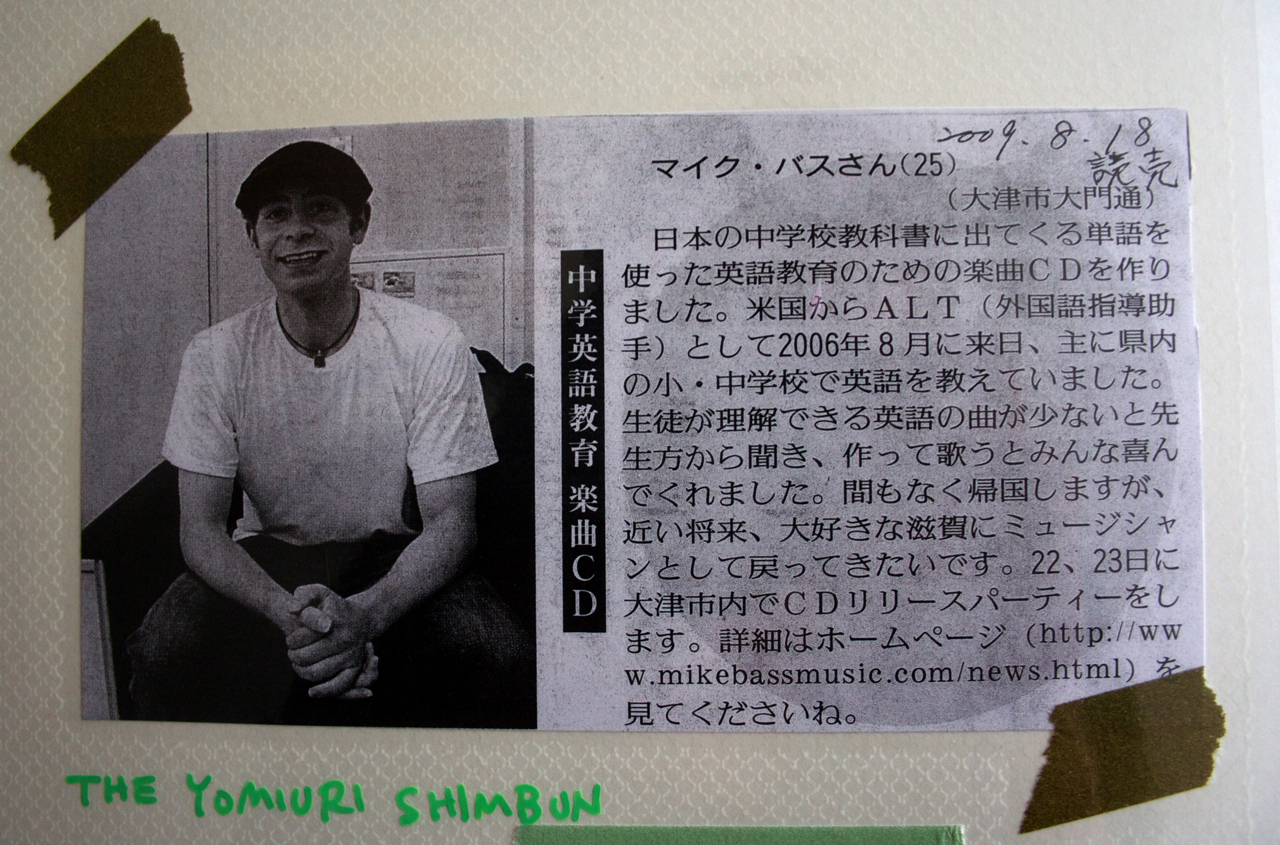 2009.8.18
読売
マイク・バスさん(25)
(大津市大門通)
中学英語教育 楽曲CD
日本の中学校教科書に出てくる単語を
使った英語教育のための楽曲CDを作り
ました。米国からALT(外国語指導助
手)として2006年8月に来日、主に県内
の小・中学校で英語を教えていました。
生徒が理解できる英語の曲が少ないと先
生方から聞き、作って歌うとみんな喜ん
でくれました。間もなく帰国しますが、
近い将来、大好きな滋賀にミュージシャ
ンとして戻ってきたいです。22、23日に
大津市内でCDリリースパーティーをし
ます。詳細はホームページ(http://ww
w.mikebassmusic.com/news.html)を
見てくださいね。
THE YOMIURI SHIMBUN